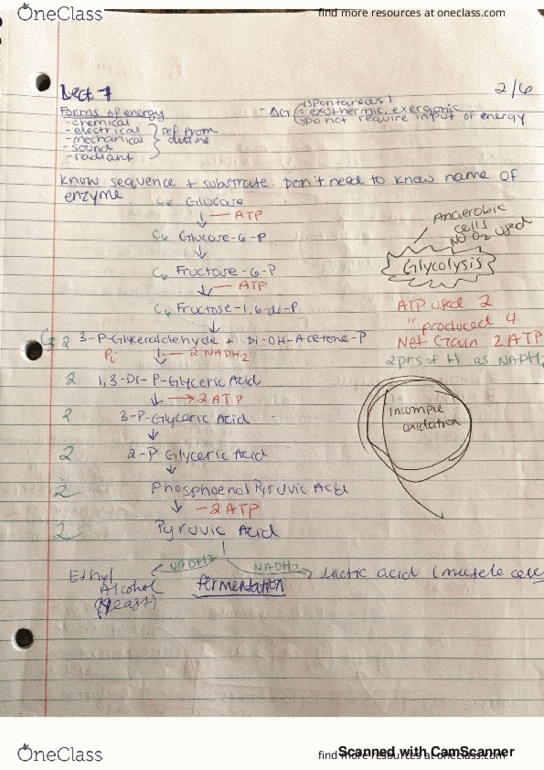 OneClass
find more resources at oneclass.com
Lect 7
2/6
Forms of energy
- chemical
- electrical
- mechanical
- sound
- radiant
Def from
outline
- ΔG
(spontaneous)
= exothermic, exergonic
Do not require input of energy
Know sequence + substrate. Don't need to know name of
enzyme.
C6 Glucose
ATP
C6 Glucose-6-P
C6 Fructose-6-P
ATP
C6 Fructose-1,6-di-P
C3 2 3-P-Glyceraldehyde + Di-OH-Acetone-P
Pi
2 NADH2
2 1,3-Di-P-Glyceric Acid
2 ATP
2 3-P-Glyceric Acid
2 2-P Glyceric Acid
2 Phosphoenol Pyruvic Acid
2 ATP
2 Pyruvic Acid
NADH2
NADH2
Ethyl
Alcohol
(Yeast)
fermentation
lactic acid (muscle cells
Anaerobic
cells
NO O2 used
Glycolysis
ATP used 2
" produced 4
Net Gain 2 ATP
2 prs of H as NADH2
Incomple
oxidation
OneClass
find more resources at oneclass.com
Scanned with CamScanner